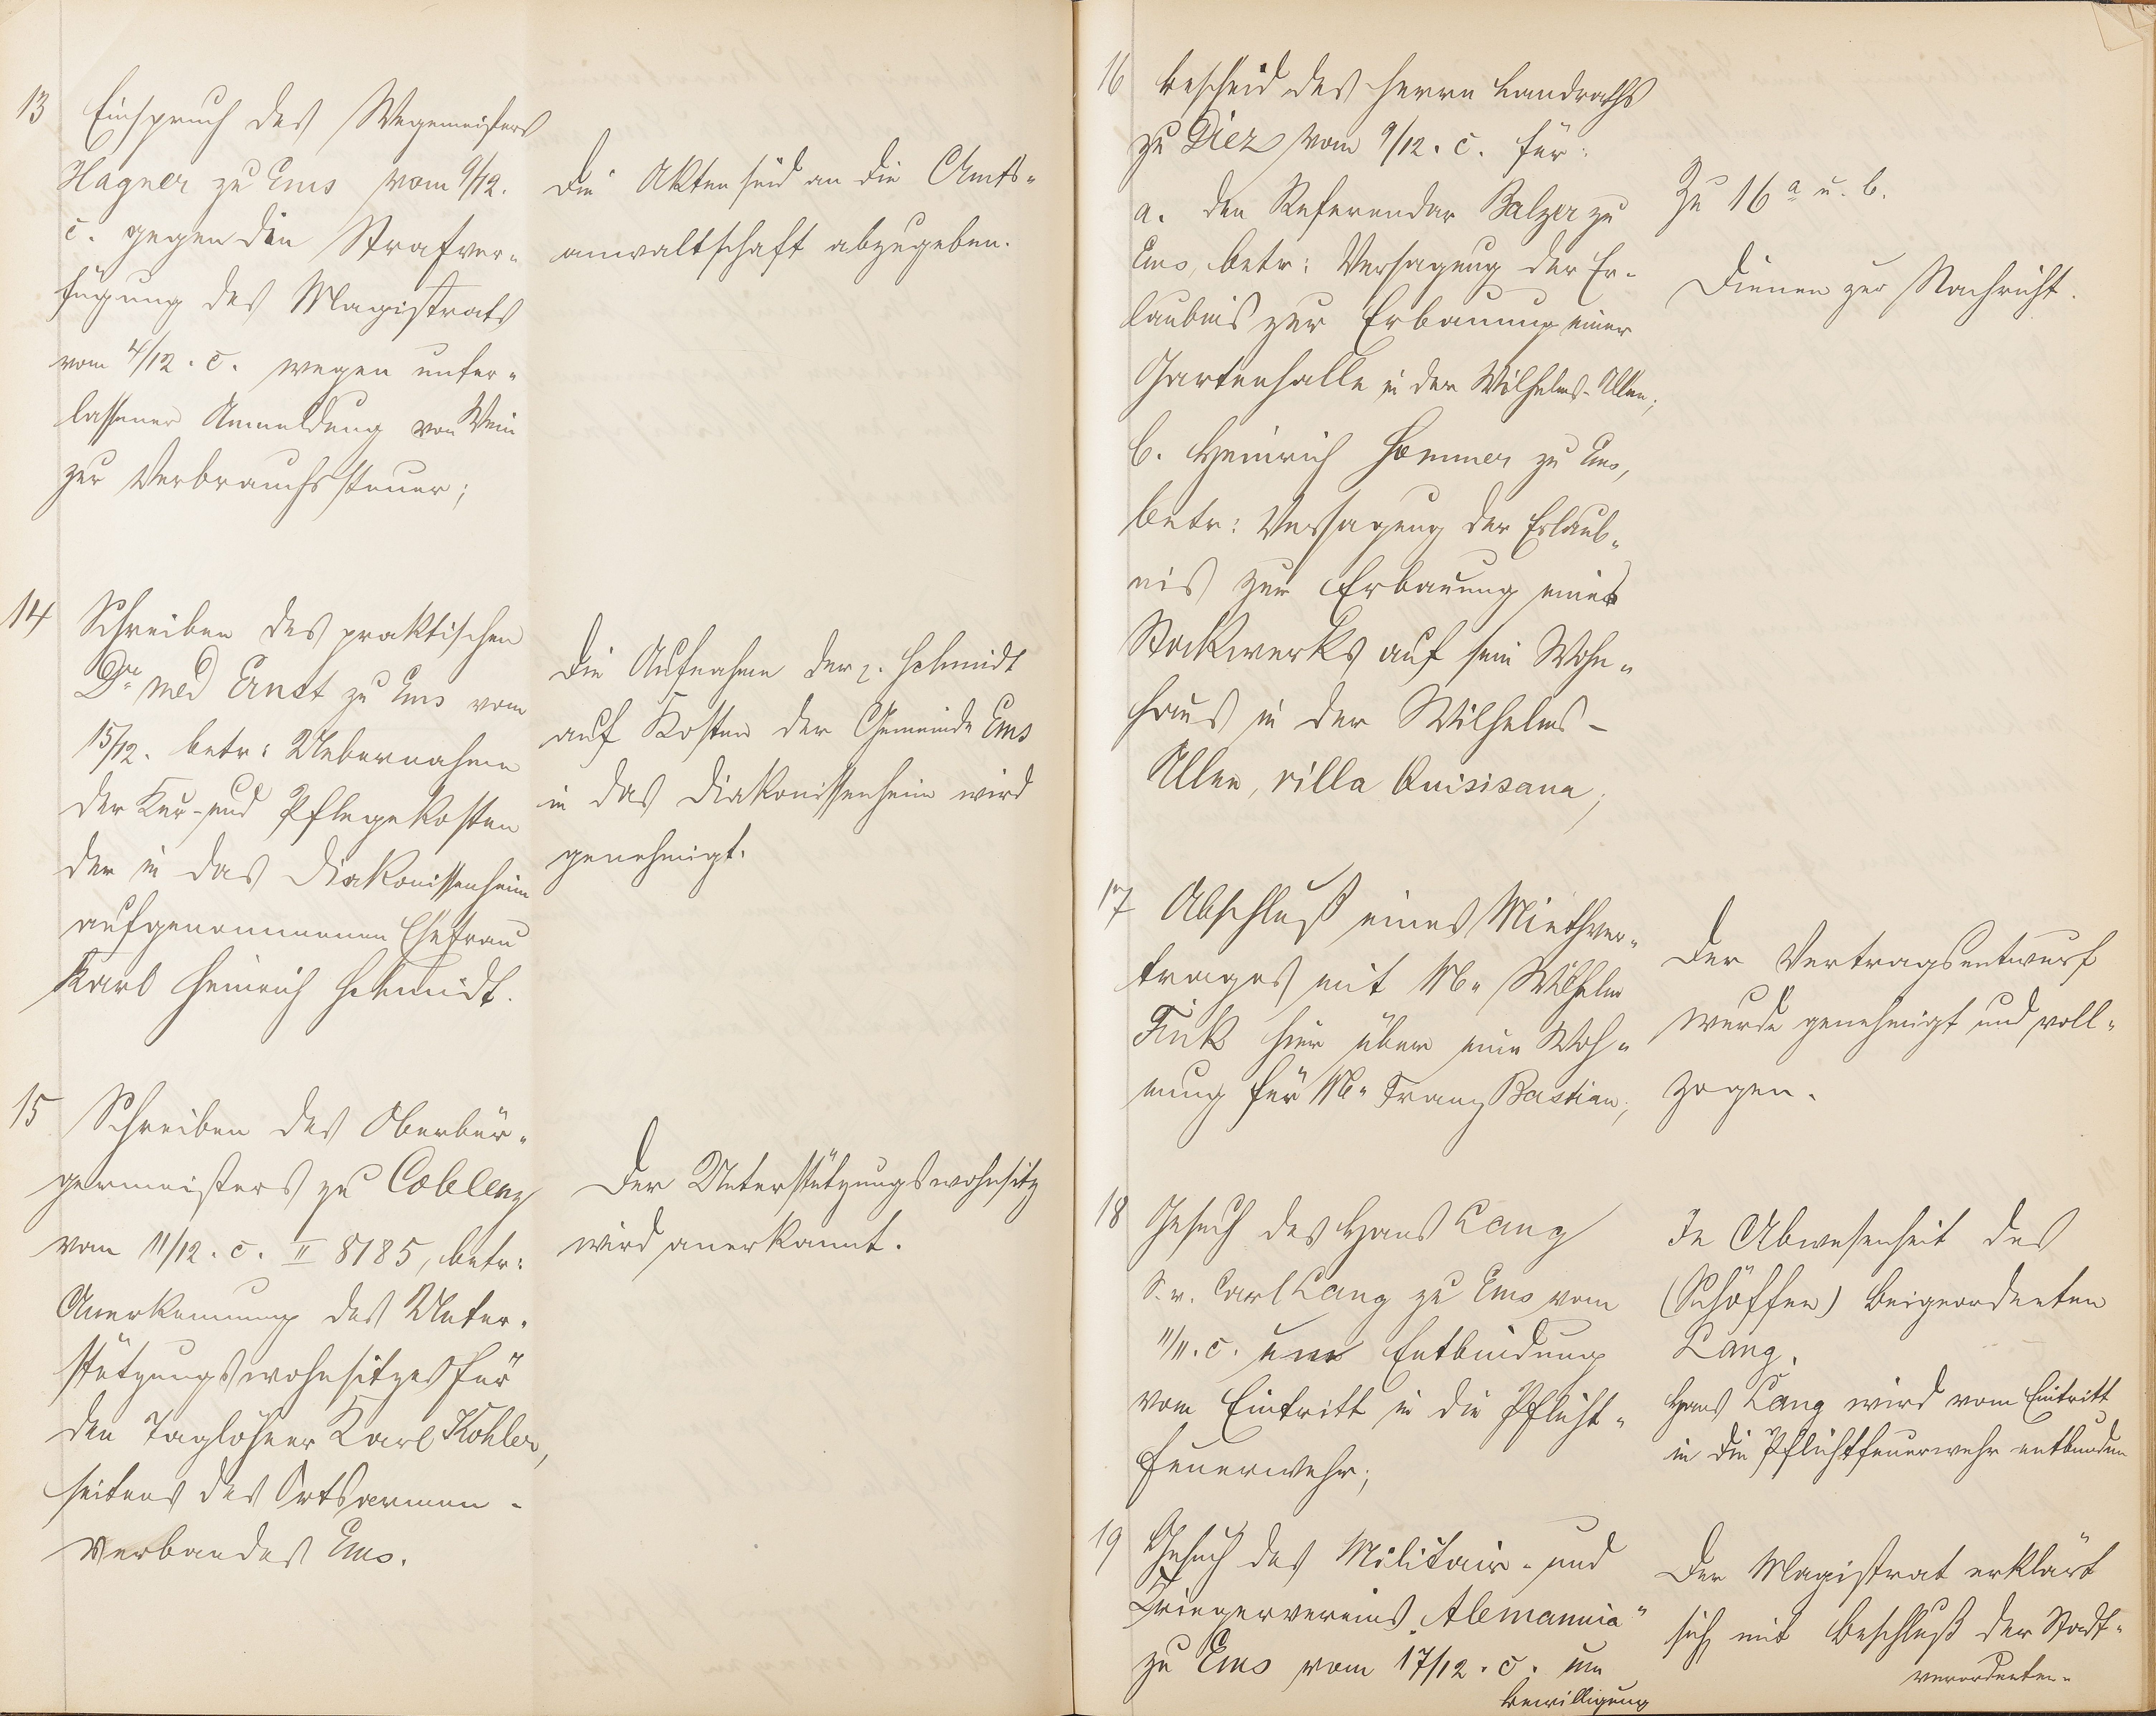 13 Einspruch des Wegemeisters
Hagner zu Ems vom 9/12.
c. gegen die Strafver-
fügung des Magistrats
vom 4/12. c. wegen unter-
lassener Anmeldung von Wein
zur Verbrauchssteuer;
Die Akten sind an die Amts-
anwaltschaft abzugeben.
14 Schreiben des praktischen
Dr med Ernst zu Ems vom
15/12. betr: Uebernahme
der Kur- und Pflegekosten
der in das Diakonissenheim
aufgenommenen Ehefrau
Karl Heinrich Schmidt.
Die Aufnahme der p. Schmidt
auf Kosten der Gemeinde Ems
in das Diakonissenheim wird
genehmigt.
15 Schreiben des Oberbür-
germeisters zu Coblenz
vom 11/12. c. II 8185, betr:
Anerkennung des Unter-
stützungswohnsitzes für
den Taglöhner Karl Kohler,
seitens des Ortsarmen-
verbandes Ems.
Der Unterstützungswohnsitz
wird anerkannt.
16 Bescheid des Herrn Landraths
zu Diez vom 9/12. c. für:
a. den Referendar Balzer zu
Ems, betr: Versagung der Er-
laubnis zur Erbauung einer
Gartenhalle in der Wilhelms-Allee;
b. Heinrich Hammer zu Ems,
betr: Versagung der Erlaub-
nis zur Erbauung eines
Stockwerks auf sein Wohn-
haus in der Wilhelms-
Allee, villa Quisisana;
Zu 16 a u. b.
Dienen zur Nachricht.
17 Abschluß eines Miethver-
trages mit Mr Wilhelm
Fink hier über eine Woh-
nung für Mr Franz Bastian;
Der Vertragsentwurf
wurde genehmigt und voll-
zogen.
18 Gesuch des Hans Lang
S. v. Carl Lang zu Ems vom
11/11. c. um Entbindung
vom Eintritt in die Pflicht-
feuerwehr;
In Abwesenheit des
(Schöffen) Beigeordneten
Lang.
Hans Lang wird vom Eintritt
in die Pflichtfeuerwehr entbunden
19 Gesuch des Militair- und
Kriegervereins „Alemannia"
zu Ems vom 17/12. c. um
Bewilligung
Der Magistrat erklärt
sich mit Beschluß der Stadt-
verordneten-